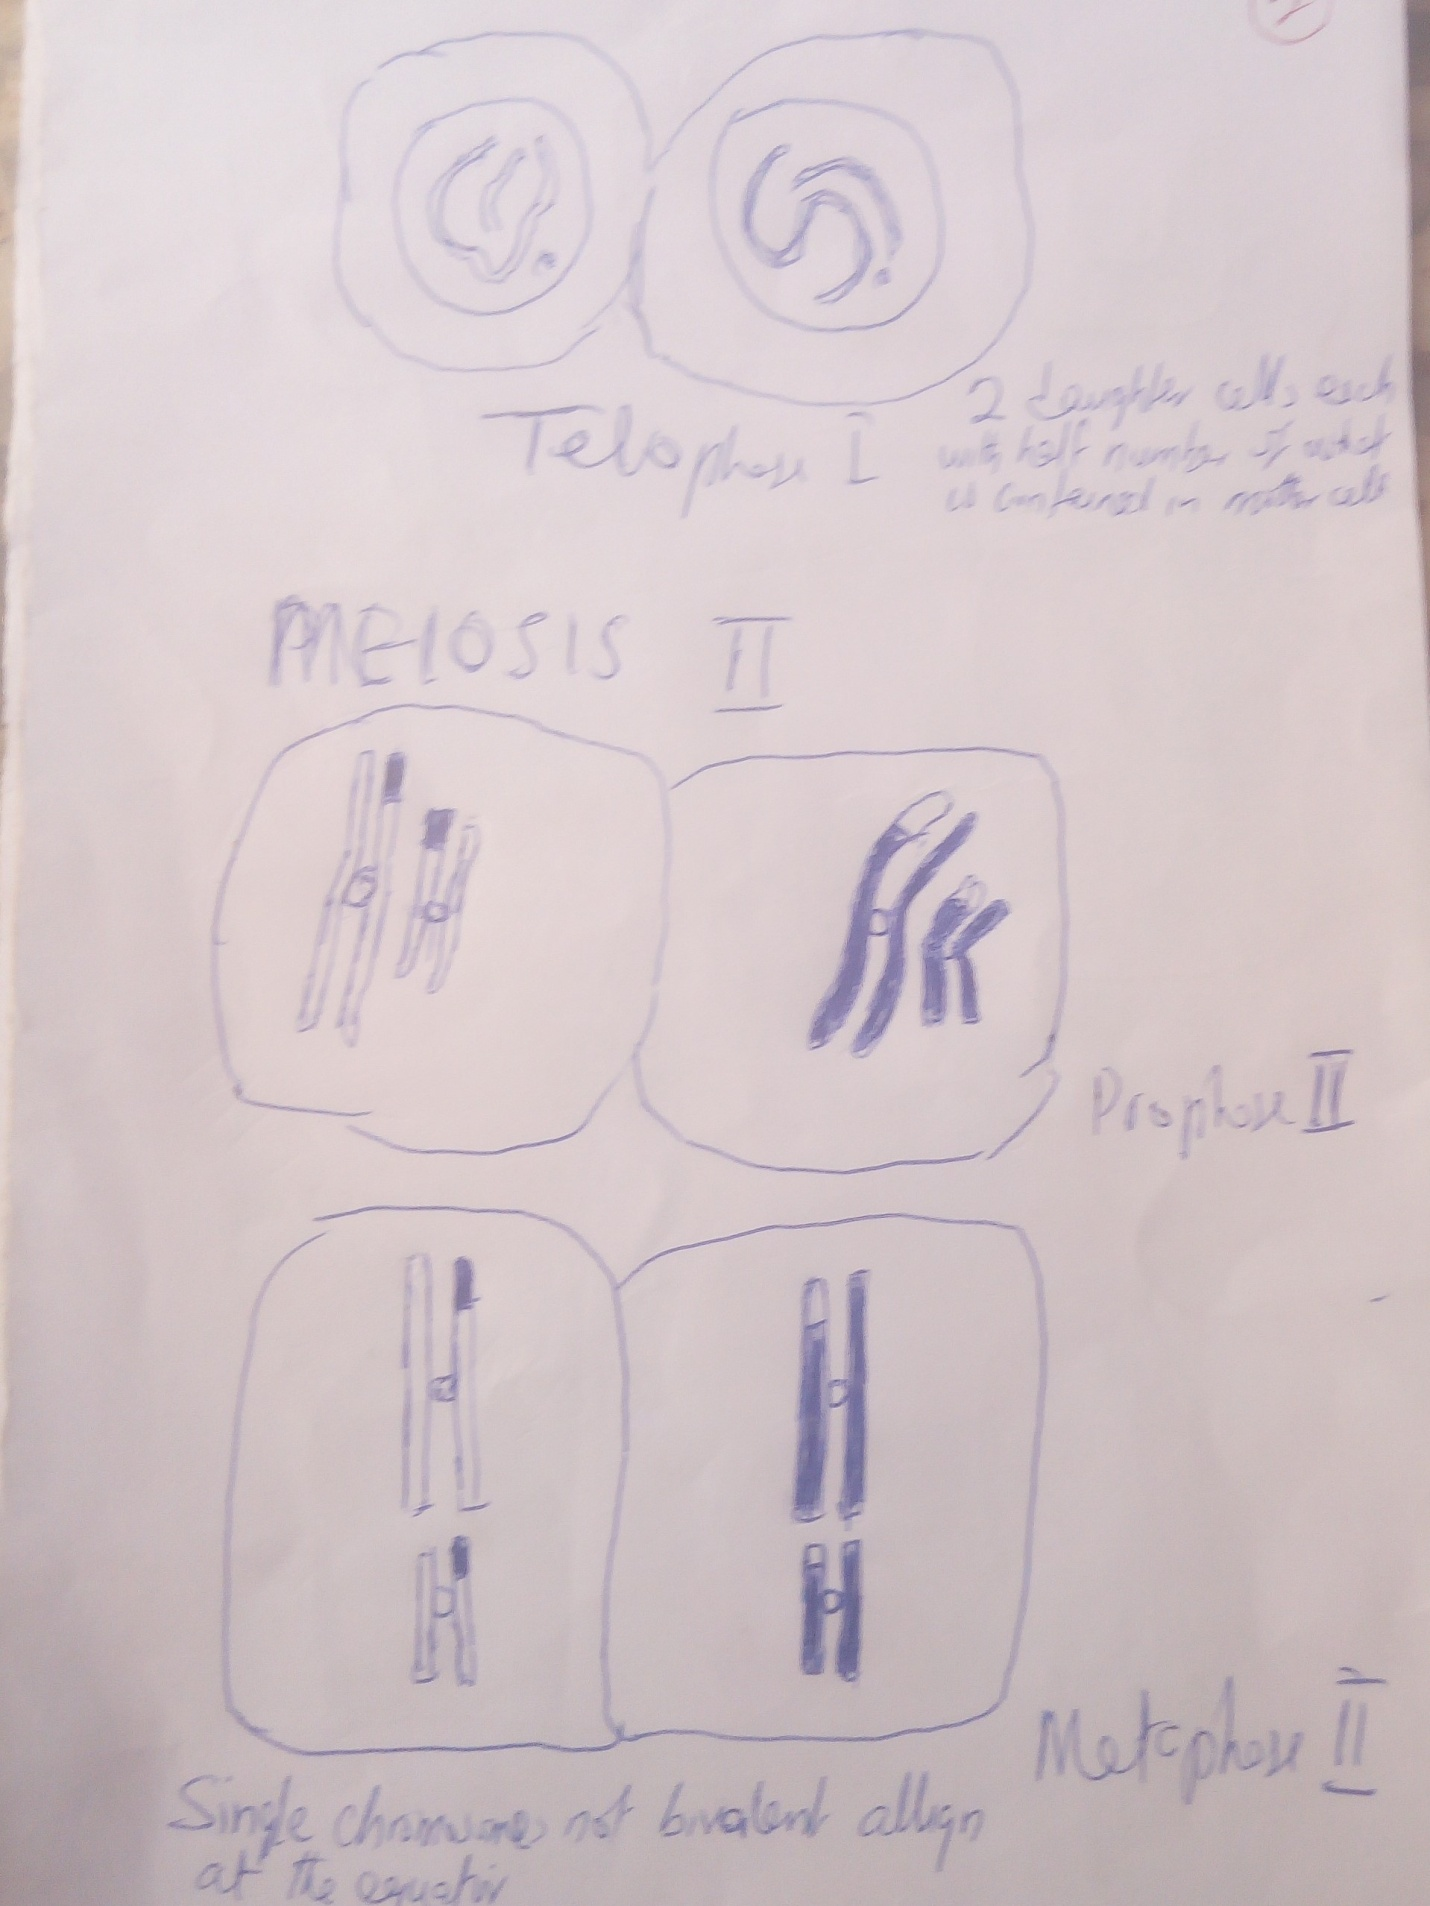 2 daughter cells each
Telophase I
with half number of what
is contained in mother cell
MEIOSIS II
Prophase II
Metaphase II
Single chromosomes not bivalent allign
at the equator